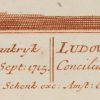 ankryk. LUDOV
Sept: 1715. Concilia
Schenk exc: Amst: C